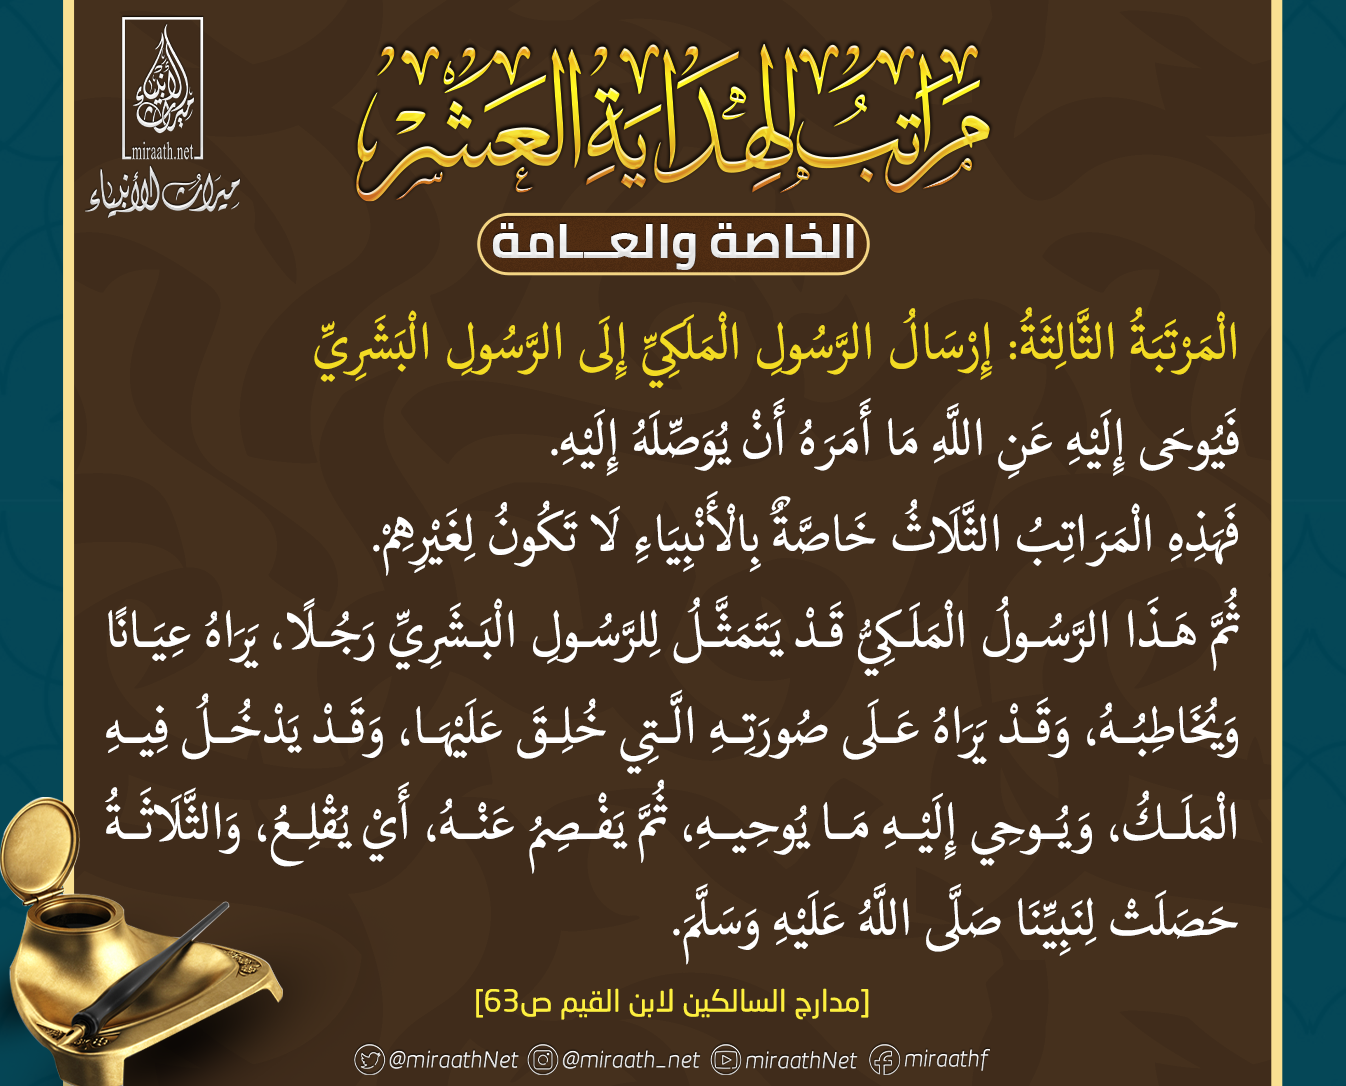 miraath.net
ميراث الأنبياء
مَرَاتِبُ الهِدَايَةِ العَشْر
الخاصة والعـــامة
الْمَرْتَبَةُ الثَّالِثَةُ: إِرْسَالُ الرَّسُولِ الْمَلَكِيِّ إِلَى الرَّسُولِ الْبَشَرِيِّ
فَيُوحَى إِلَيْهِ عَنِ اللَّهِ مَا أَمَرَهُ أَنْ يُوَصِّلَهُ إِلَيْهِ.
فَهَذِهِ الْمَرَاتِبُ الثَّلَاثُ خَاصَّةٌ بِالْأَنْبِيَاءِ لَا تَكُونُ لِغَيْرِهِمْ.
ثُمَّ هَـذَا الرَّسُـولُ الْمَلَـكِيُّ قَـدْ يَتَمَثَّـلُ لِلرَّسُـولِ الْبَـشَرِيِّ رَجُـلًا، يَرَاهُ عِيَـانًا
وَيُخَاطِبُـهُ، وَقَـدْ يَرَاهُ عَـلَى صُورَتِـهِ الَّـتِي خُلِـقَ عَلَيْهَـا، وَقَـدْ يَدْخُـلُ فِيـهِ
الْمَلَـكُ، وَيُـوحِي إِلَيْـهِ مَـا يُوحِيـهِ، ثُمَّ يَفْـصِمُ عَنْـهُ، أَيْ يُقْلِـعُ، وَالثَّلَاثَـةُ
حَصَلَتْ لِنَبِيِّنَا صَلَّى اللَّهُ عَلَيْهِ وَسَلَّمَ.
[مدارج السالكين لابن القيم ص63]
@miraathNet @miraath_net miraathNet miraathf